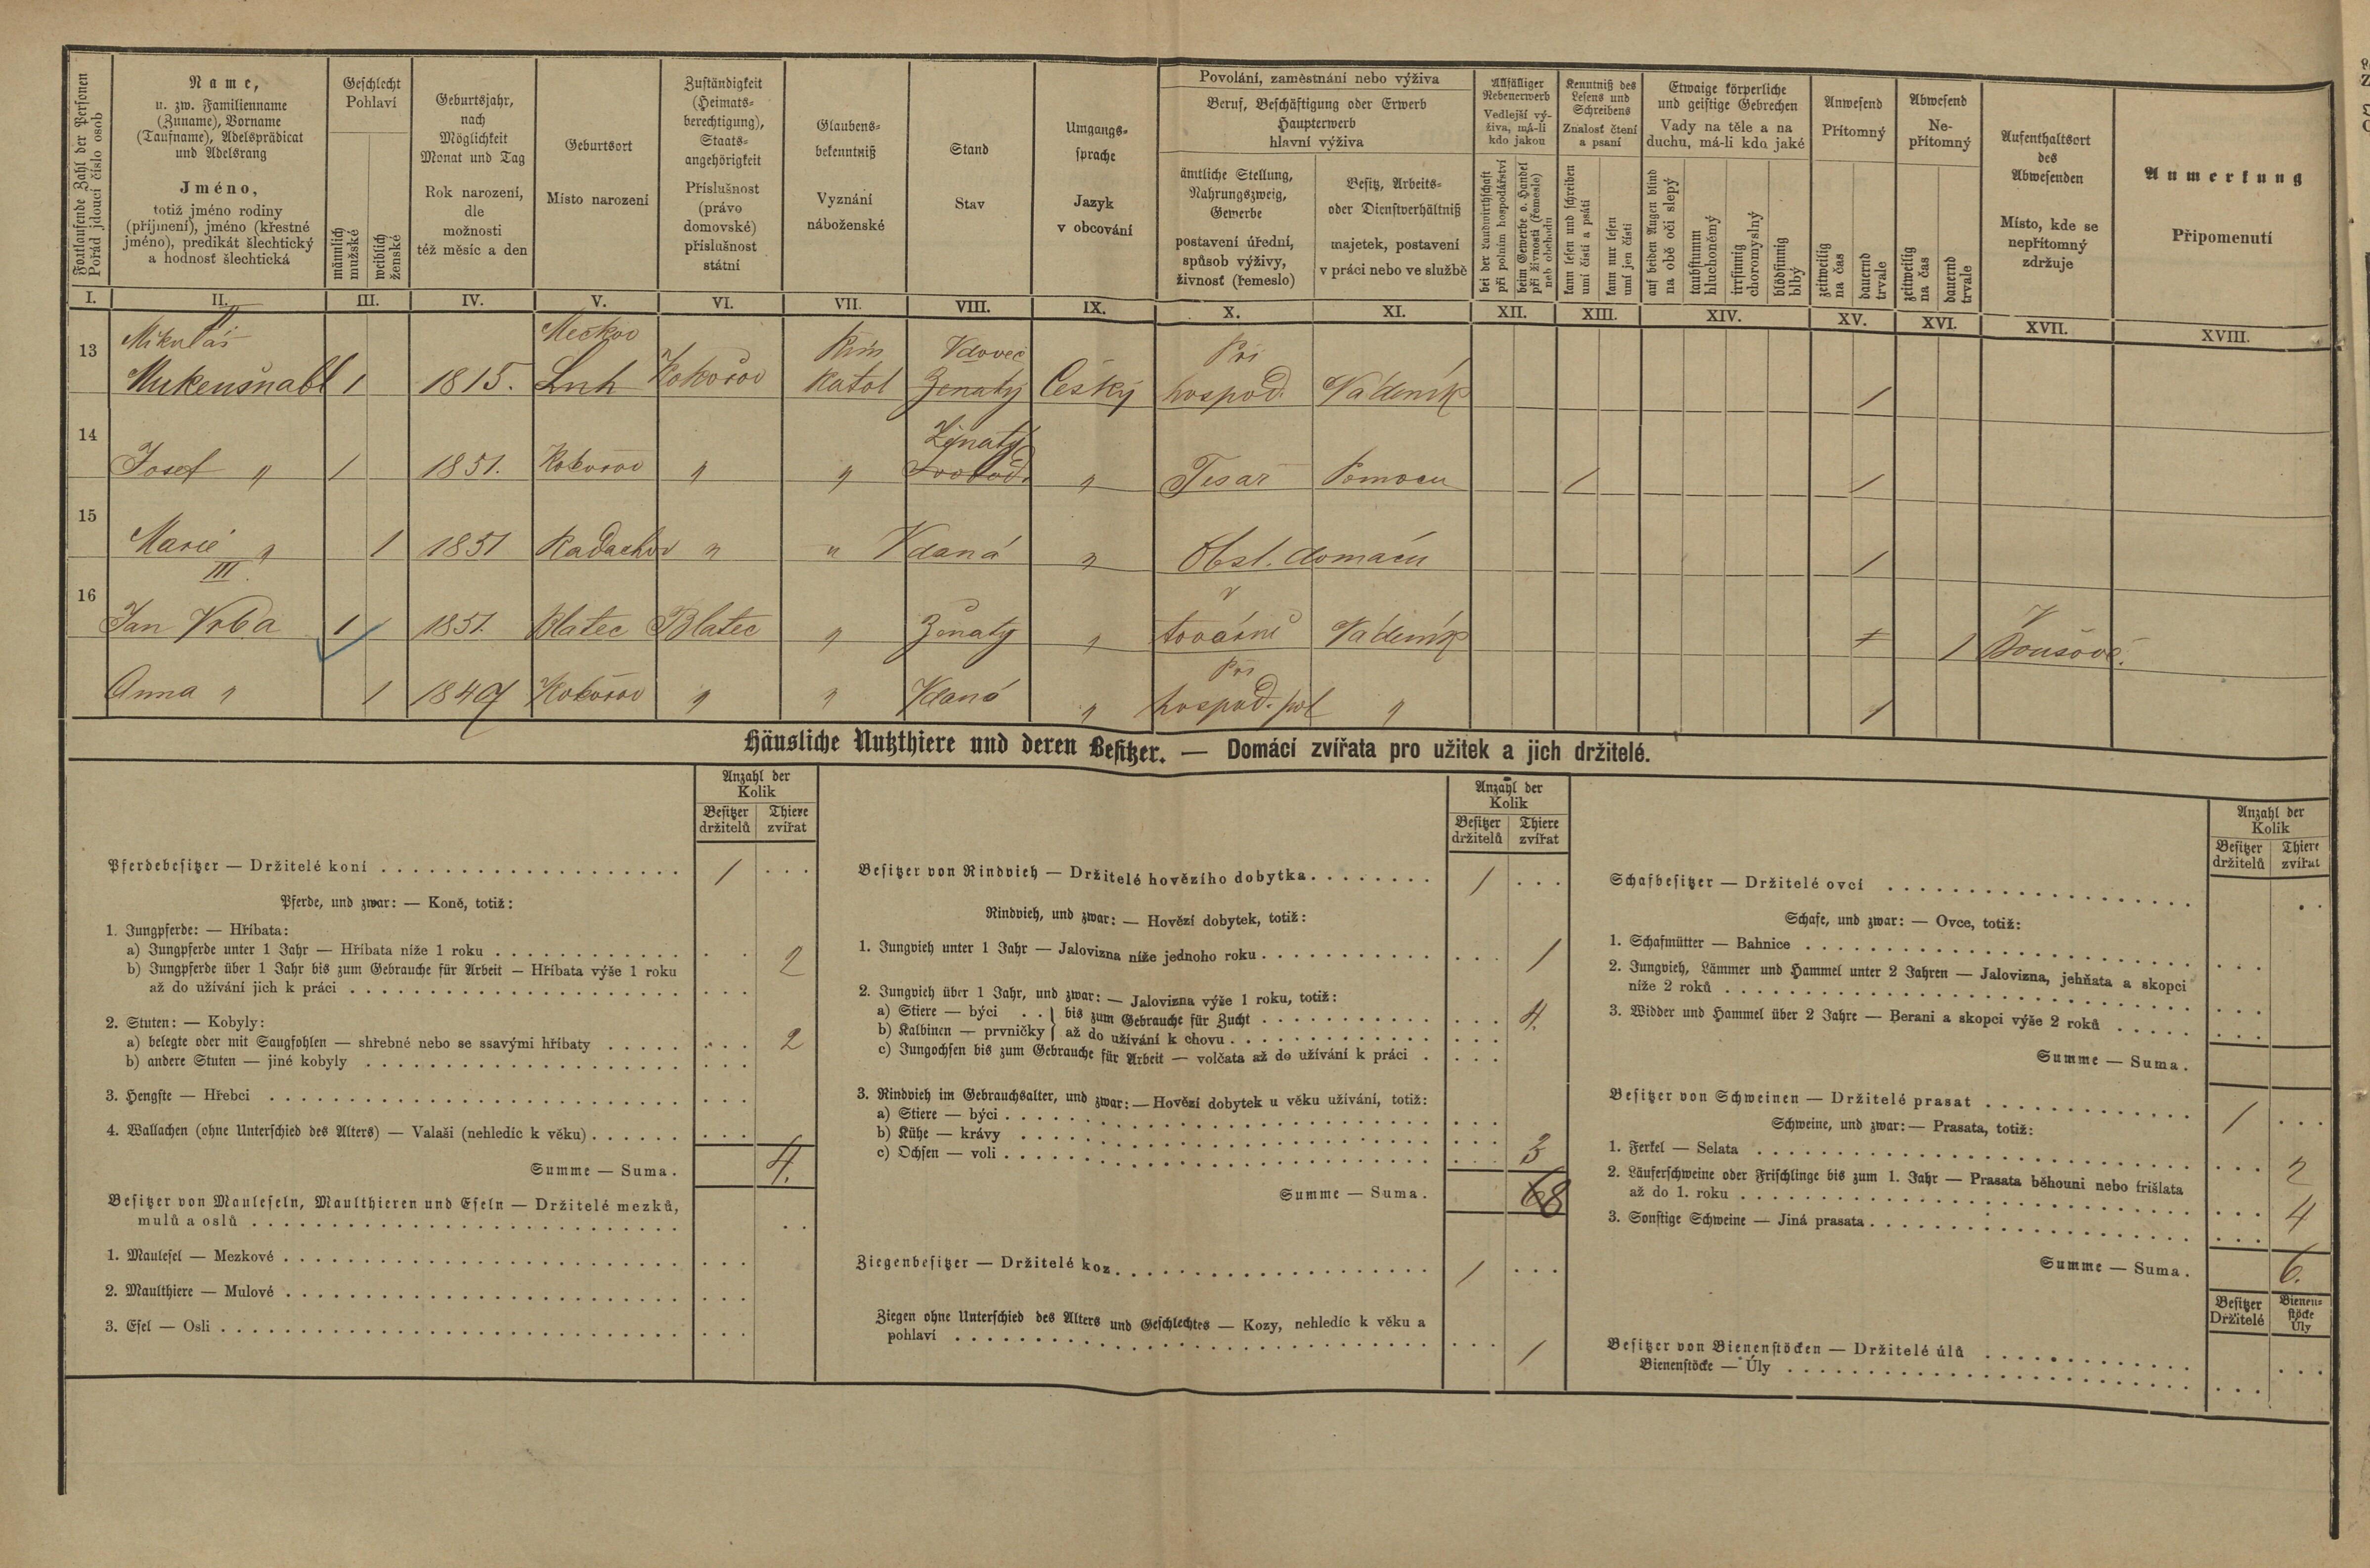 Fortlaufende Zahl der Personen
Pořád jdoucí číslo osob
Name,
u. zw. Familienname
(Zuname), Vorname
(Taufname), Adelsprädicat
und Adelsrang
Jméno,
totiž jméno rodiny
(příjmení), jméno (křestné
jméno), predikát šlechtický
a hodnosť šlechtická
Geschlecht
Pohlaví
männlich
mužské
weiblich
ženské
Geburtsjahr,
nach
Möglichkeit
Monat und Tag
Rok narození,
dle
možnosti
též měsíc a den
Geburtsort
Místo narození
Zuständigkeit
(Heimats-
berechtigung),
Staats-
angehörigkeit
Příslušnost
(právo
domovské)
příslušnost
státní
Glaubens-
bekenntniß
Vyznání
náboženské
Stand
Stav
Umgangs-
sprache
Jazyk
v obcování
Povolání, zaměstnání nebo výživa
Beruf, Beschäftigung oder Erwerb
Haupterwerb
hlavní výživa
ämtliche Stellung,
Nahrungszweig,
Gewerbe
postavení úřední,
spůsob výživy,
živnosť (řemeslo)
Besitz, Arbeits-
oder Dienstverhältniß
majetek, postavení
v práci nebo ve službě
Allfälliger
Nebenerwerb
Vedlejší vý-
živa, má-li
kdo jakou
bei der Landwirthschaft
při polním hospodářství
beim Gewerbe o. Handel
při živnosti (řemesle)
neb obchodu
Kenntniß des
Lesens und
Schreibens
Znalosť čtení
a psaní
kann lesen und schreiben
umí čísti a psáti
kann nur lesen
umí jen čísti
Etwaige körperliche
und geistige Gebrechen
Vady na těle a na
duchu, má-li kdo jaké
auf beiden Augen blind
na obě oči slepý
taubstumm
hluchoněmý
irrsinnig
choromyslný
blödsinnig
blbý
Anwesend
Přítomný
zeitweilig
na čas
dauernd
trvale
Abwesend
Ne-
přítomný
zeitweilig
na čas
dauernd
trvale
Aufenthaltsort
des
Abwesenden
Místo, kde se
nepřítomný
zdržuje
Anmerkung
Připomenutí
I. II. III. IV. V. VI. VII. VIII. IX. X. XI. XII. XIII. XIV. XV. XVI. XVII. XVIII.
Mikuláš Mečkov Řím Vdovec Při
13 Mukenšnabl 1 1815. Lnh Kokořov Katol Ženatý Český hospod. Nádeník 1
Ženatý
14 Josef " 1 1851. Kokořov " " Svobod. " Tesař Pomocn 1 1
15 Marie " 1 1851 Radachov " " Vdaná " Obsl. domácn 1
III. v
16 Jan Vrba 1 1851. Blatec Blatec " Ženatý " továrně Nádeník 1 1
Při
Anna " 1 1849 Kokořov " " Vdaná " hospod. pol " 1
Häusliche Nutzthiere und deren Besitzer. — Domácí zvířata pro užitek a jich držitelé.
Anzahl der
Kolik
Besitzer
držitelů
Thiere
zvířat
Pferdebesitzer — Držitelé koní 1
Pferde, und zwar: — Koně, totiž:
1. Jungpferde: — Hříbata:
a) Jungpferde unter 1 Jahr — Hříbata níže 1 roku 2
b) Jungpferde über 1 Jahr bis zum Gebrauche für Arbeit — Hříbata výše 1 roku
až do užívání jich k práci
2. Stuten: — Kobyly:
a) belegte oder mit Saugfohlen — shřebné nebo se ssavými hříbaty 2
b) andere Stuten — jiné kobyly
3. Hengste — Hřebci
4. Wallachen (ohne Unterschied des Alters) — Valaši (nehledíc k věku)
Summe — Suma. 4.
Besitzer von Mauleseln, Maulthieren und Eseln — Držitelé mezků,
mulů a oslů
1. Maulesel — Mezkové
2. Maulthiere — Mulové
3. Esel — Osli
Anzahl der
Kolik
Besitzer
držitelů
Thiere
zvířat
Besitzer von Rindvieh — Držitelé hovězího dobytka 1
Rindvieh, und zwar: — Hovězí dobytek, totiž:
1. Jungvieh unter 1 Jahr — Jalovizna níže jednoho roku 1
2. Jungvieh über 1 Jahr, und zwar: — Jalovizna výše 1 roku, totiž:
a) Stiere — býci bis zum Gebrauche für Zucht 4.
b) Kalbinen — prvničky až do užívání k chovu
c) Jungochsen bis zum Gebrauche für Arbeit — volčata až do užívání k práci
3. Rindvieh im Gebrauchsalter, und zwar: — Hovězí dobytek u věku užívání, totiž:
a) Stiere — býci
b) Kühe — krávy
c) Ochsen — voli 3
Summe — Suma. 8
Ziegenbesitzer — Držitelé koz 1
Ziegen ohne Unterschied des Alters und Geschlechtes — Kozy, nehledíc k věku a
pohlaví 1
Anzahl der
Kolik
Besitzer
držitelů
Thiere
zvířat
Schafbesitzer — Držitelé ovcí
Schafe, und zwar: — Ovce, totiž:
1. Schafmütter — Bahnice
2. Jungvieh, Lämmer und Hammel unter 2 Jahren — Jalovizna, jehňata a skopci
níže 2 roků
3. Widder und Hammel über 2 Jahre — Berani a skopci výše 2 roků
Summe — Suma.
Besitzer von Schweinen — Držitelé prasat 1
Schweine, und zwar: — Prasata, totiž:
1. Ferkel — Selata 2
2. Läuferschweine oder Frischlinge bis zum 1. Jahr — Prasata běhouni nebo frišlata
až do 1. roku 4
3. Sonstige Schweine — Jiná prasata
Summe — Suma. 6.
Besitzer
Držitelé
Bienen-
stöcke
Úly
Besitzer von Bienenstöcken — Držitelé úlů
Bienenstöcke — Úly